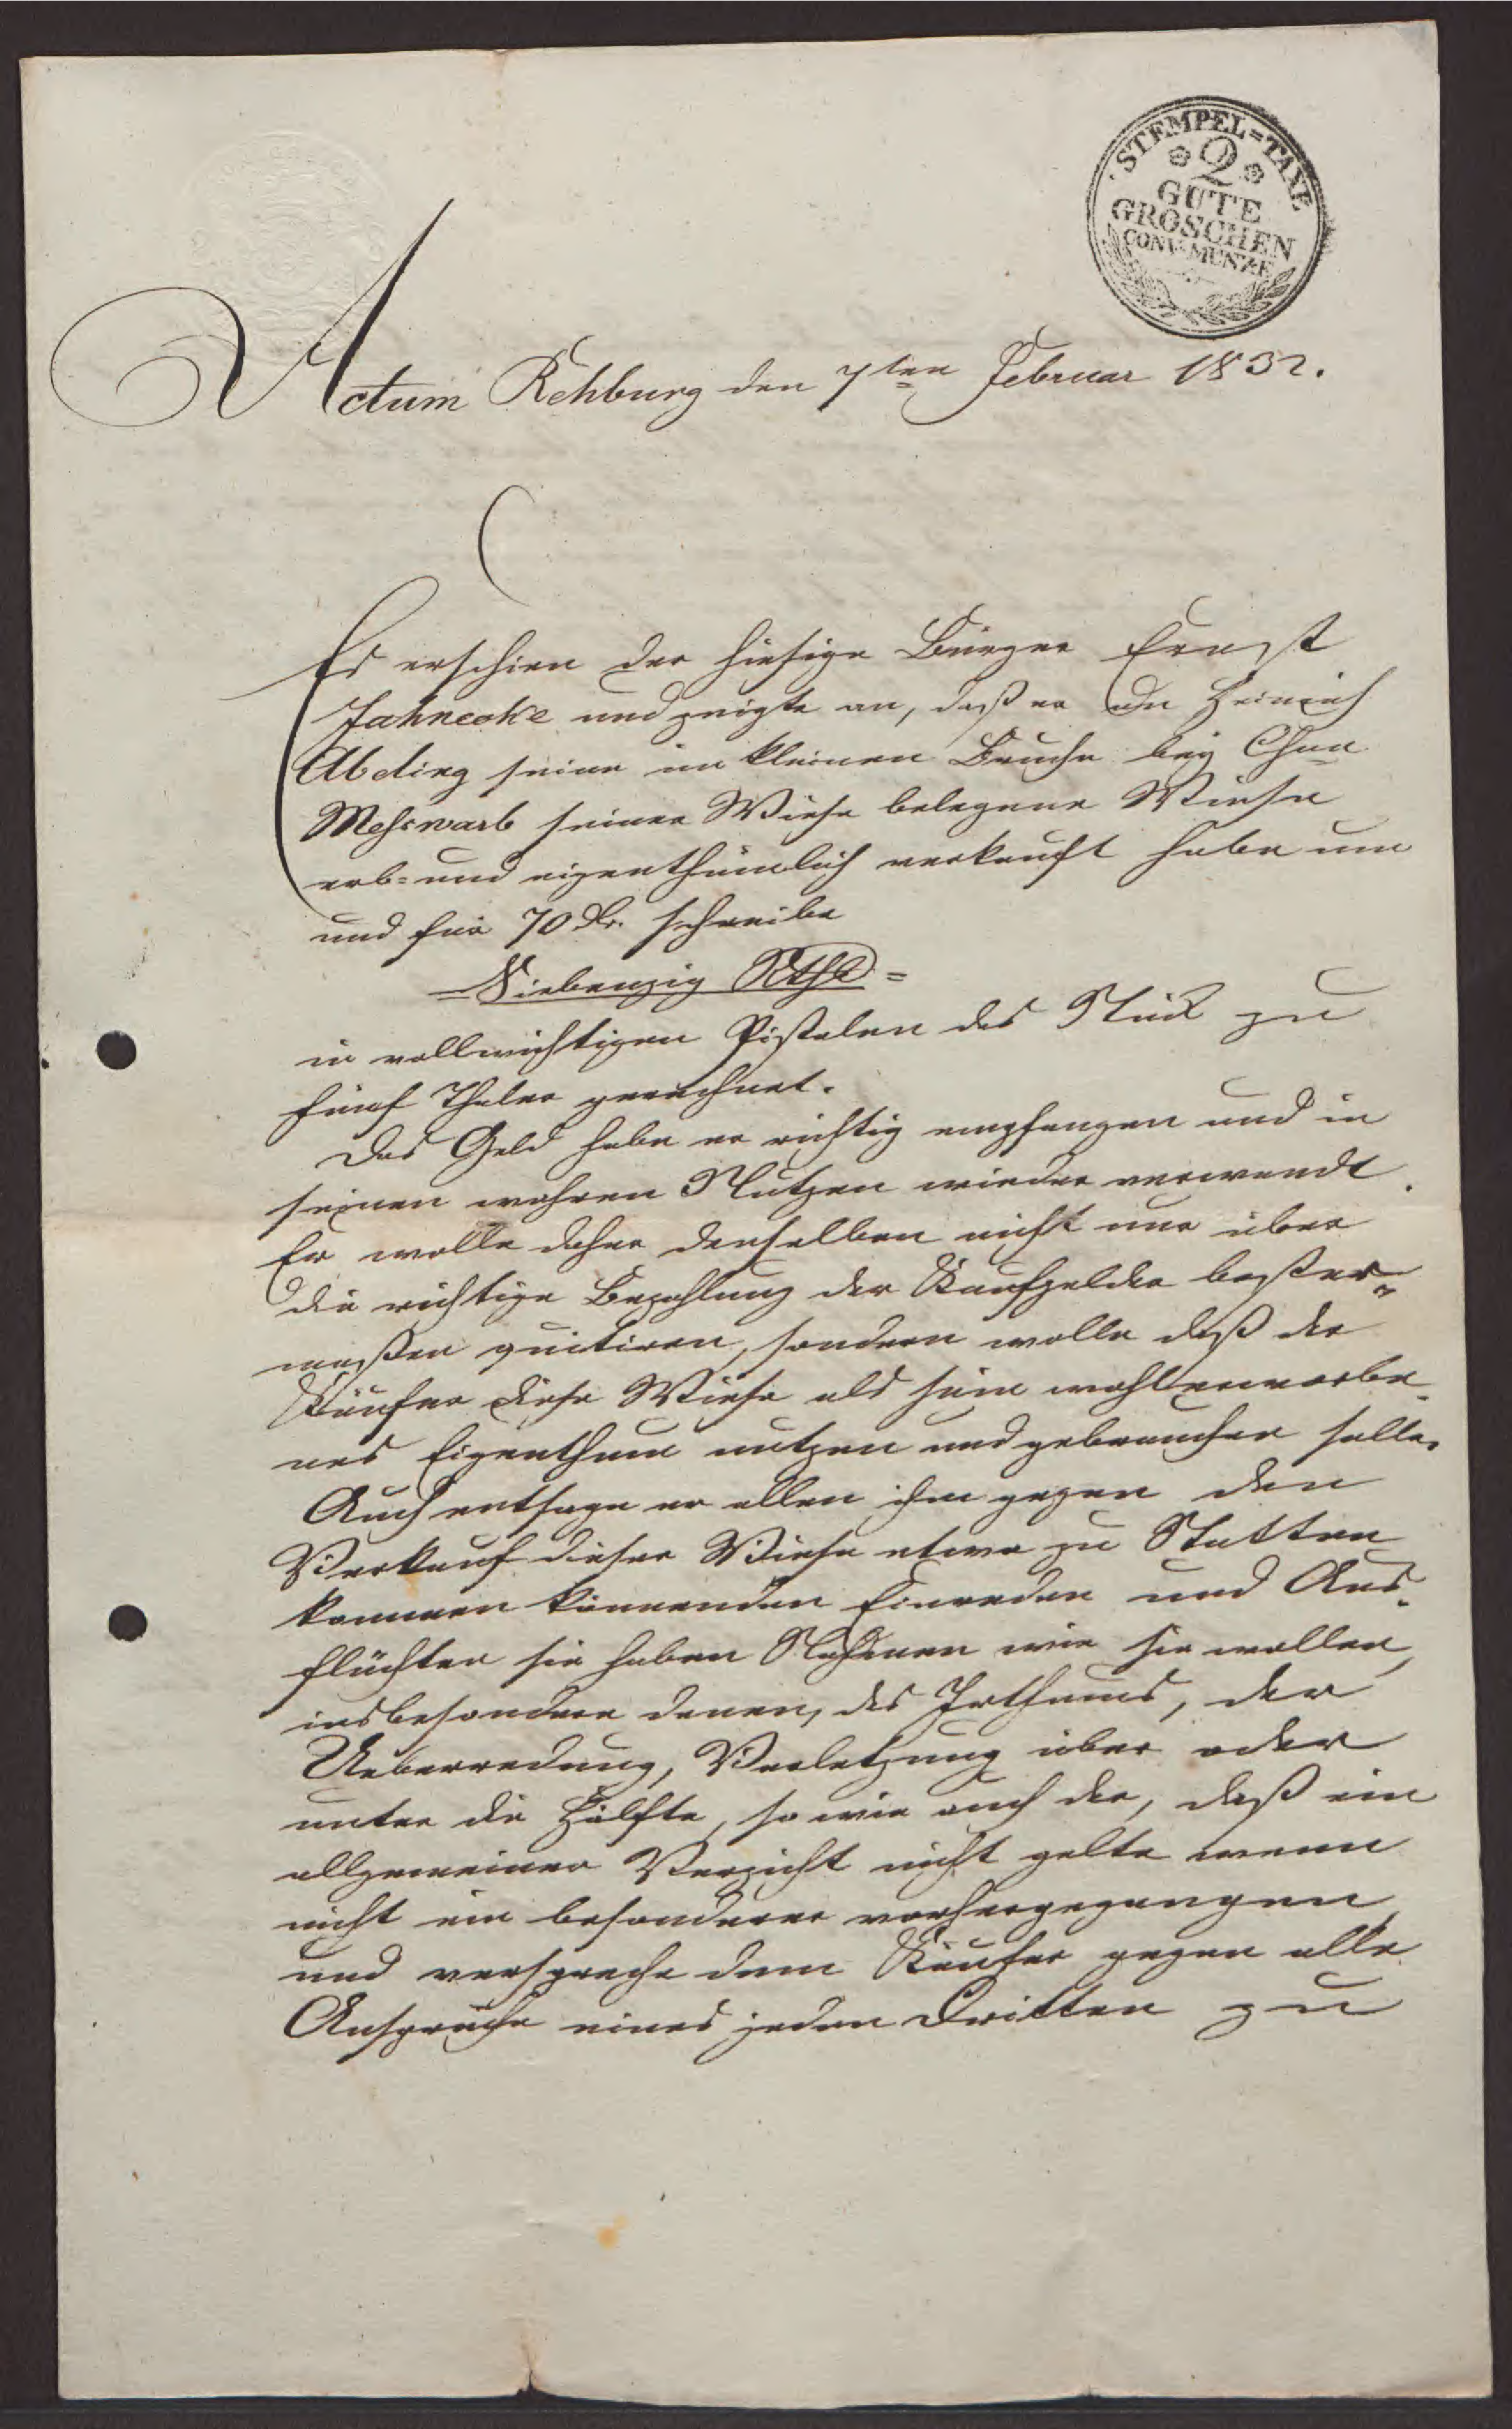 STEMPEL=TAXE
2
GUTE
GROSCHEN
CONV: MÜNZE
Actum Rehburg den 7ten Februar 1832.
Es erschien der hiesige Bürger Ernst
Jahnecke und zeigte an, daß er an Heinrich
Abeling seine im kleinen Bruche bey Chrn
Meßwarb seiner Wiese belegene Wiese
erb- und eigenthümlich verkauft habe um
und für 70 Thlr. schreibe
=Siebenzig Rthlr=
in vollwichtigen Pistolen das Stück zu
fünf Thaler gerechnet.
Das Geld habe er richtig empfangen und in
seinen wahren Nutzen wieder verwendt.
Er wolle daher denselben nicht nur über
die richtige Bezahlung der Kaufgelder bester-
maßen quitiren, sondern wolle daß der
Käufer diese Wiese als sein wohlerworbe-
nes Eigenthum nutzen und gebrauchen solle.
Auch entsage er allen ihm gegen den
Verkauf dieser Wiese etwa zu Statten
kommen könnenden Einreden und Aus-
flüchten sie haben Nahmen wie sie wollen,
insbesondere denen, des Irthums, der
Ueberredung, Verletzung über oder
unter die Hälfte, so wie auch der, daß ein
allgemeiner Verzicht nicht gelte wenn
nicht ein besonderer vorhergegangen
und verspreche dem Käufer gegen alle
Ansprüche eines jeden Dritten zu